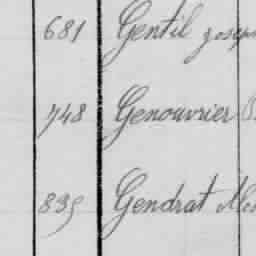 681 Gentil Josep
748 Genouvrier
835 Gendrat